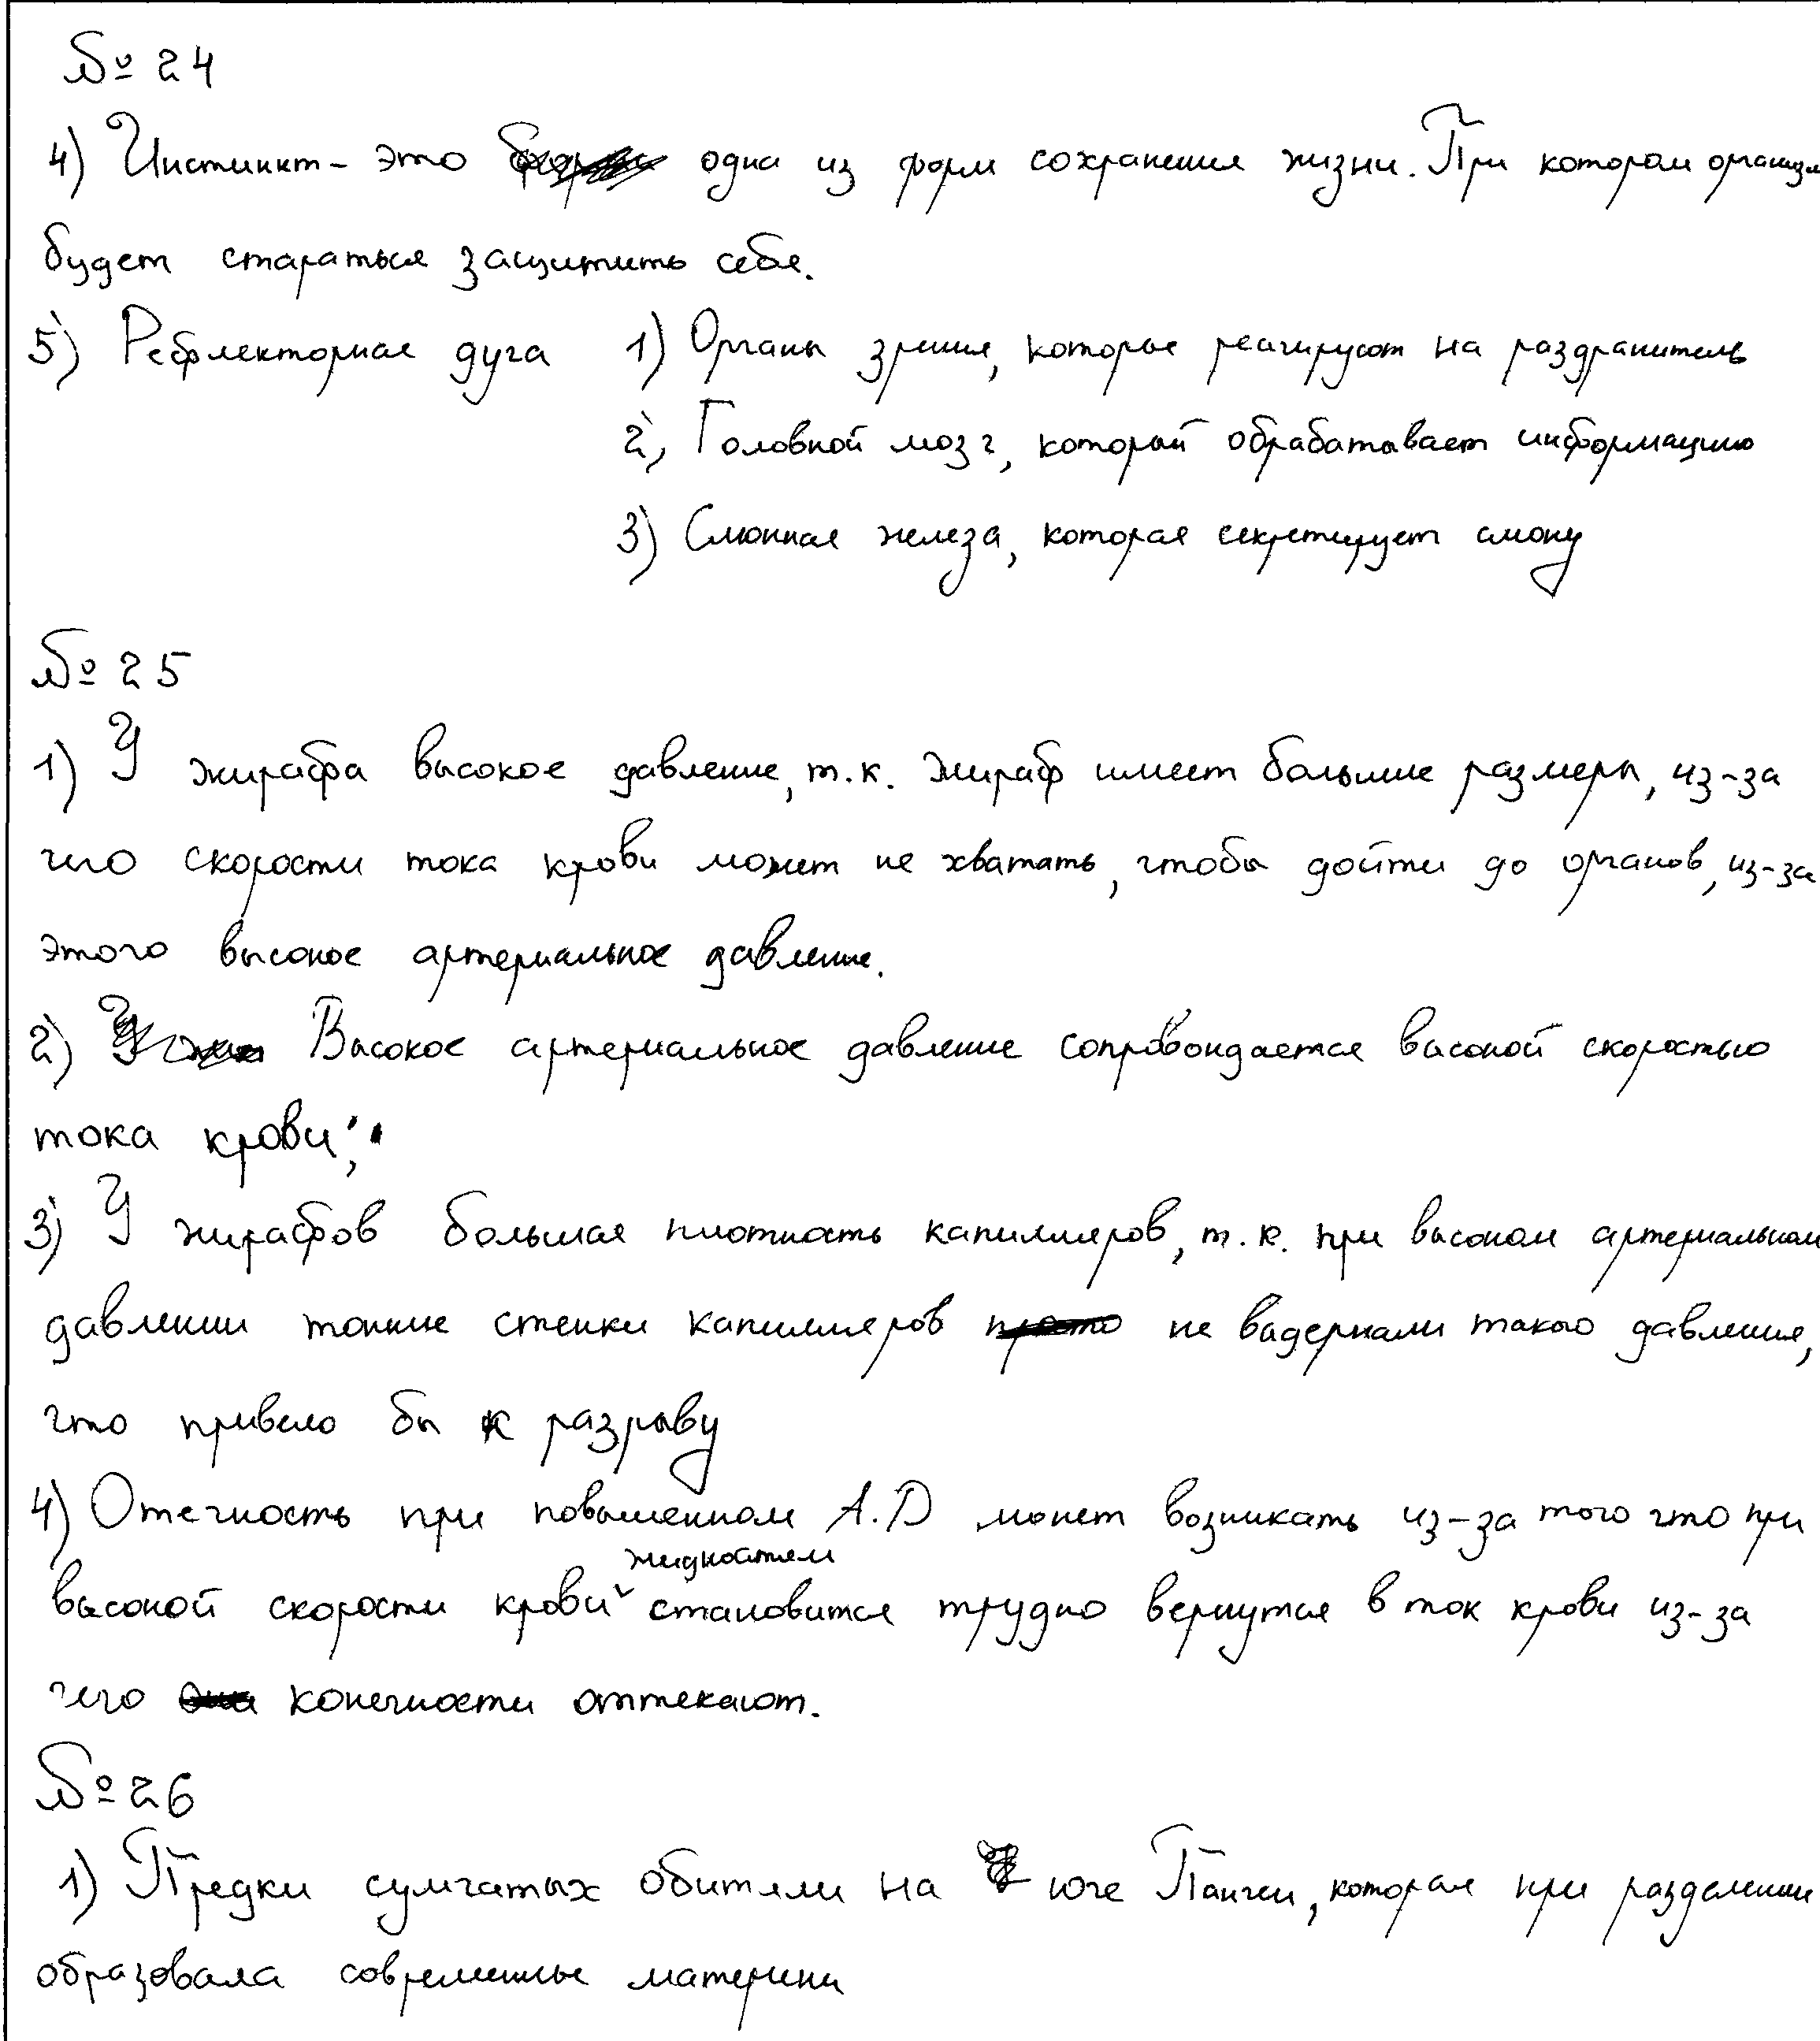 № 24
4) Инстинкт - это одна из форм сохранения жизни. При котором организм
будет стараться защитить себя.
5) Рефлекторная дуга 1) Органы зрения, которые реагируют на раздражитель
2) Головной мозг, который обрабатывает информацию
3) Слюнная железа, которая секретирует слюну
№ 25
1) У жирафа высокое давление, т.к. жираф имеет большие размеры, из-за
чего скорости тока крови может не хватать, чтобы дойти до органов, из-за
этого высокое артериальное давление.
2) Высокое артериальное давление сопровождается высокой скоростью
тока крови;
3) У жирафов большая плотность капилляров, т.к. при высоком артериальном
давлении тонкие стенки капилляров не выдержали такого давления,
что привело бы к разрыву
4) Отечность при повышенном А.Д может возникать из-за того что при
высокой скорости крови жидкостям становится трудно вернутся в ток крови из-за
чего конечности оттекают.
№ 26
1) Предки сумчатых обитали на юге Пангеи, которая при разделении
образовала современные материки